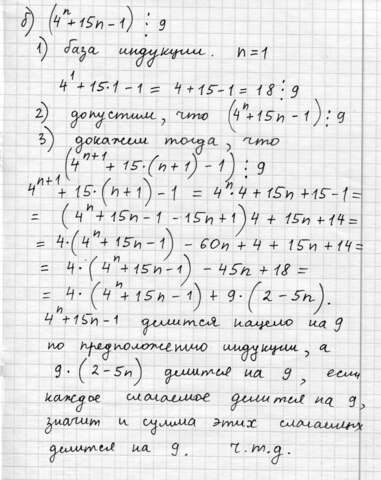 б) (4ⁿ+15n-1) ⋮ 9
1) база индукции. n=1
4¹+15·1-1 = 4+15-1 = 18 ⋮ 9
2) допустим, что (4ⁿ+15n-1) ⋮ 9
3) докажем тогда, что
(4ⁿ⁺¹ + 15·(n+1) - 1) ⋮ 9
4ⁿ⁺¹ + 15·(n+1) - 1 = 4ⁿ·4 + 15n + 15 - 1 =
= (4ⁿ+15n-1 -15n+1)4 + 15n + 14 =
= 4·(4ⁿ+15n-1) - 60n + 4 + 15n + 14 =
= 4·(4ⁿ+15n-1) - 45n + 18 =
= 4·(4ⁿ+15n-1) + 9·(2-5n).
4ⁿ+15n-1 делится нацело на 9
по предположению индукции, а
9·(2-5n) делится на 9, если
каждое слагаемое делится на 9,
значит и сумма этих слагаемых
делится на 9. ч.т.д.